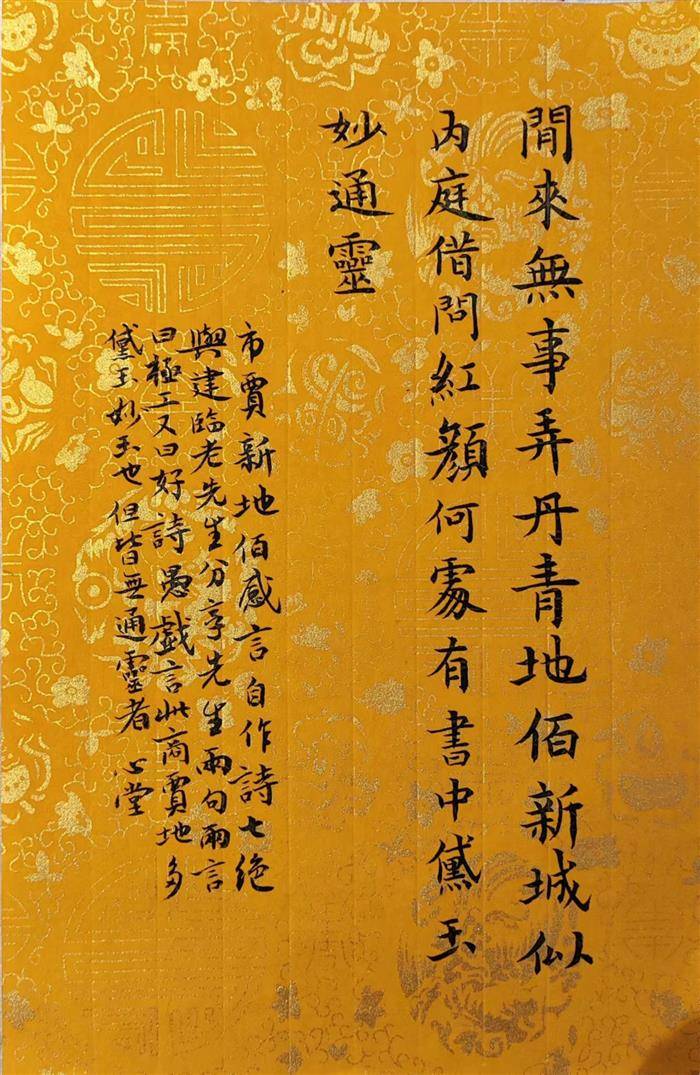 閒來無事弄丹青地佰新城似
內庭借問紅顏何處有書中黛玉
妙通靈
市賈新地佰感言自作詩七絕
與建臨老先生分享先生兩句兩言
曰極工又曰好詩愚戲言此商賈地多
黛玉妙玉也但皆無通靈者 心堂